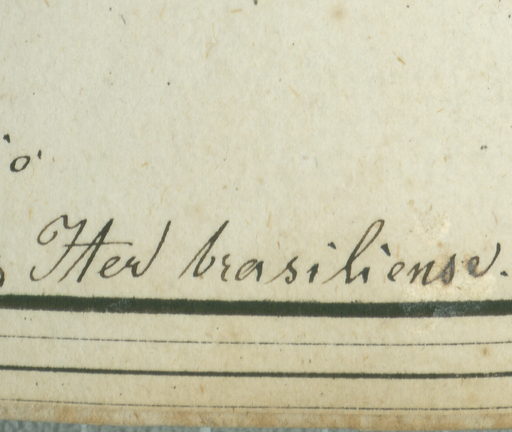 Iter brasiliense.